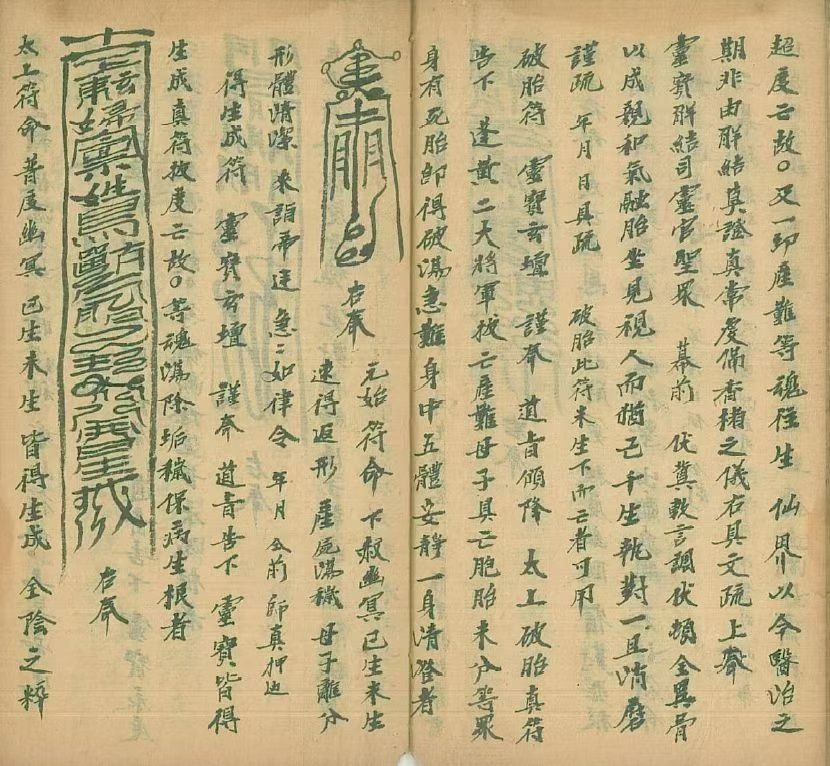 超度亡故○又一切產難等魂往生 仙界以今醫治之
期非由解結真證真常虔備香楮之儀右具文疏上奉
靈寶解結司靈官聖眾 幕前 伏冀敷言調伏頓全異骨
以成親和氣融胎坐見視人而猶己千生執對一旦消磨
謹疏 年月日具疏 破胎此符未生下而亡者可用
破胎符 靈寶玄壇 謹奉 道旨傾降 太上破胎真符
告下 蓬黃二大將軍拔亡產難母子具亡胞胎未分等眾
身有死胎即得破蕩急難身中五體安靜一身清澄者
右奉
元始符命 下赦幽冥已生未生
速得返形 產屍蕩穢 母子離分
形體清潔 來詣帝廷 急二如律令 年月 全前 師真押血
得生成符 靈寶玄壇 謹奉 道旨告下 靈寶皆得
生成真符拔度亡故○等魂蕩除垢穢保病生根者
右奉
太上符命 普度幽冥 已生未生 皆得生成 全陰之粹